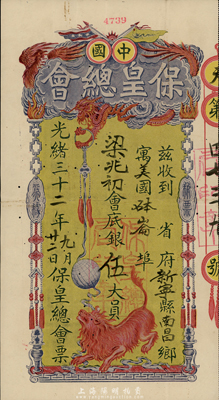 4739
中國
保皇總會
茲收到 省 府新寧縣南昌鄉
寓美國砵崙埠
梁兆初會底銀伍大員
光緒三十二年九月廿二日保皇總會票
號